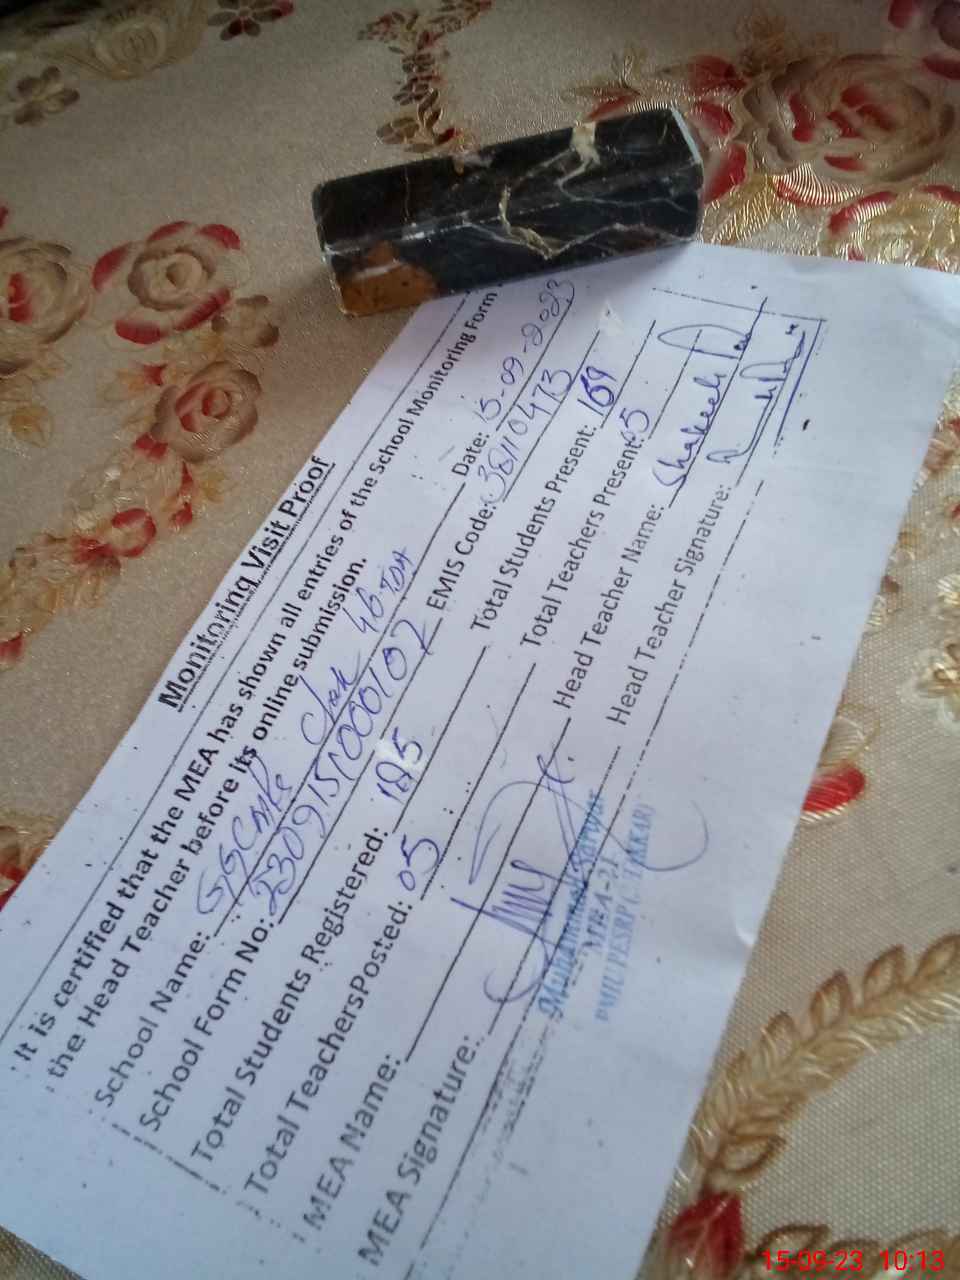 Monitoring Visit Proof
It is certified that the MEA has shown all entries of the School Monitoring Form
the Head Teacher before its online submission.
School Name: GGCMPS Chak 46 TDA Date: 15-09-2023
School Form No: 2309151000102 EMIS Code: 38110473
Total Students Registered: 185 Total Students Present: 169
Total TeachersPosted: 05 Total Teachers Present: 05
MEA Name: Head Teacher Name: Shakeela
MEA Signature: Head Teacher Signature:
Muhammad Sarwar
MEA-21
PMIU PESRP (BHAKKAR)
15-09-23 10:13